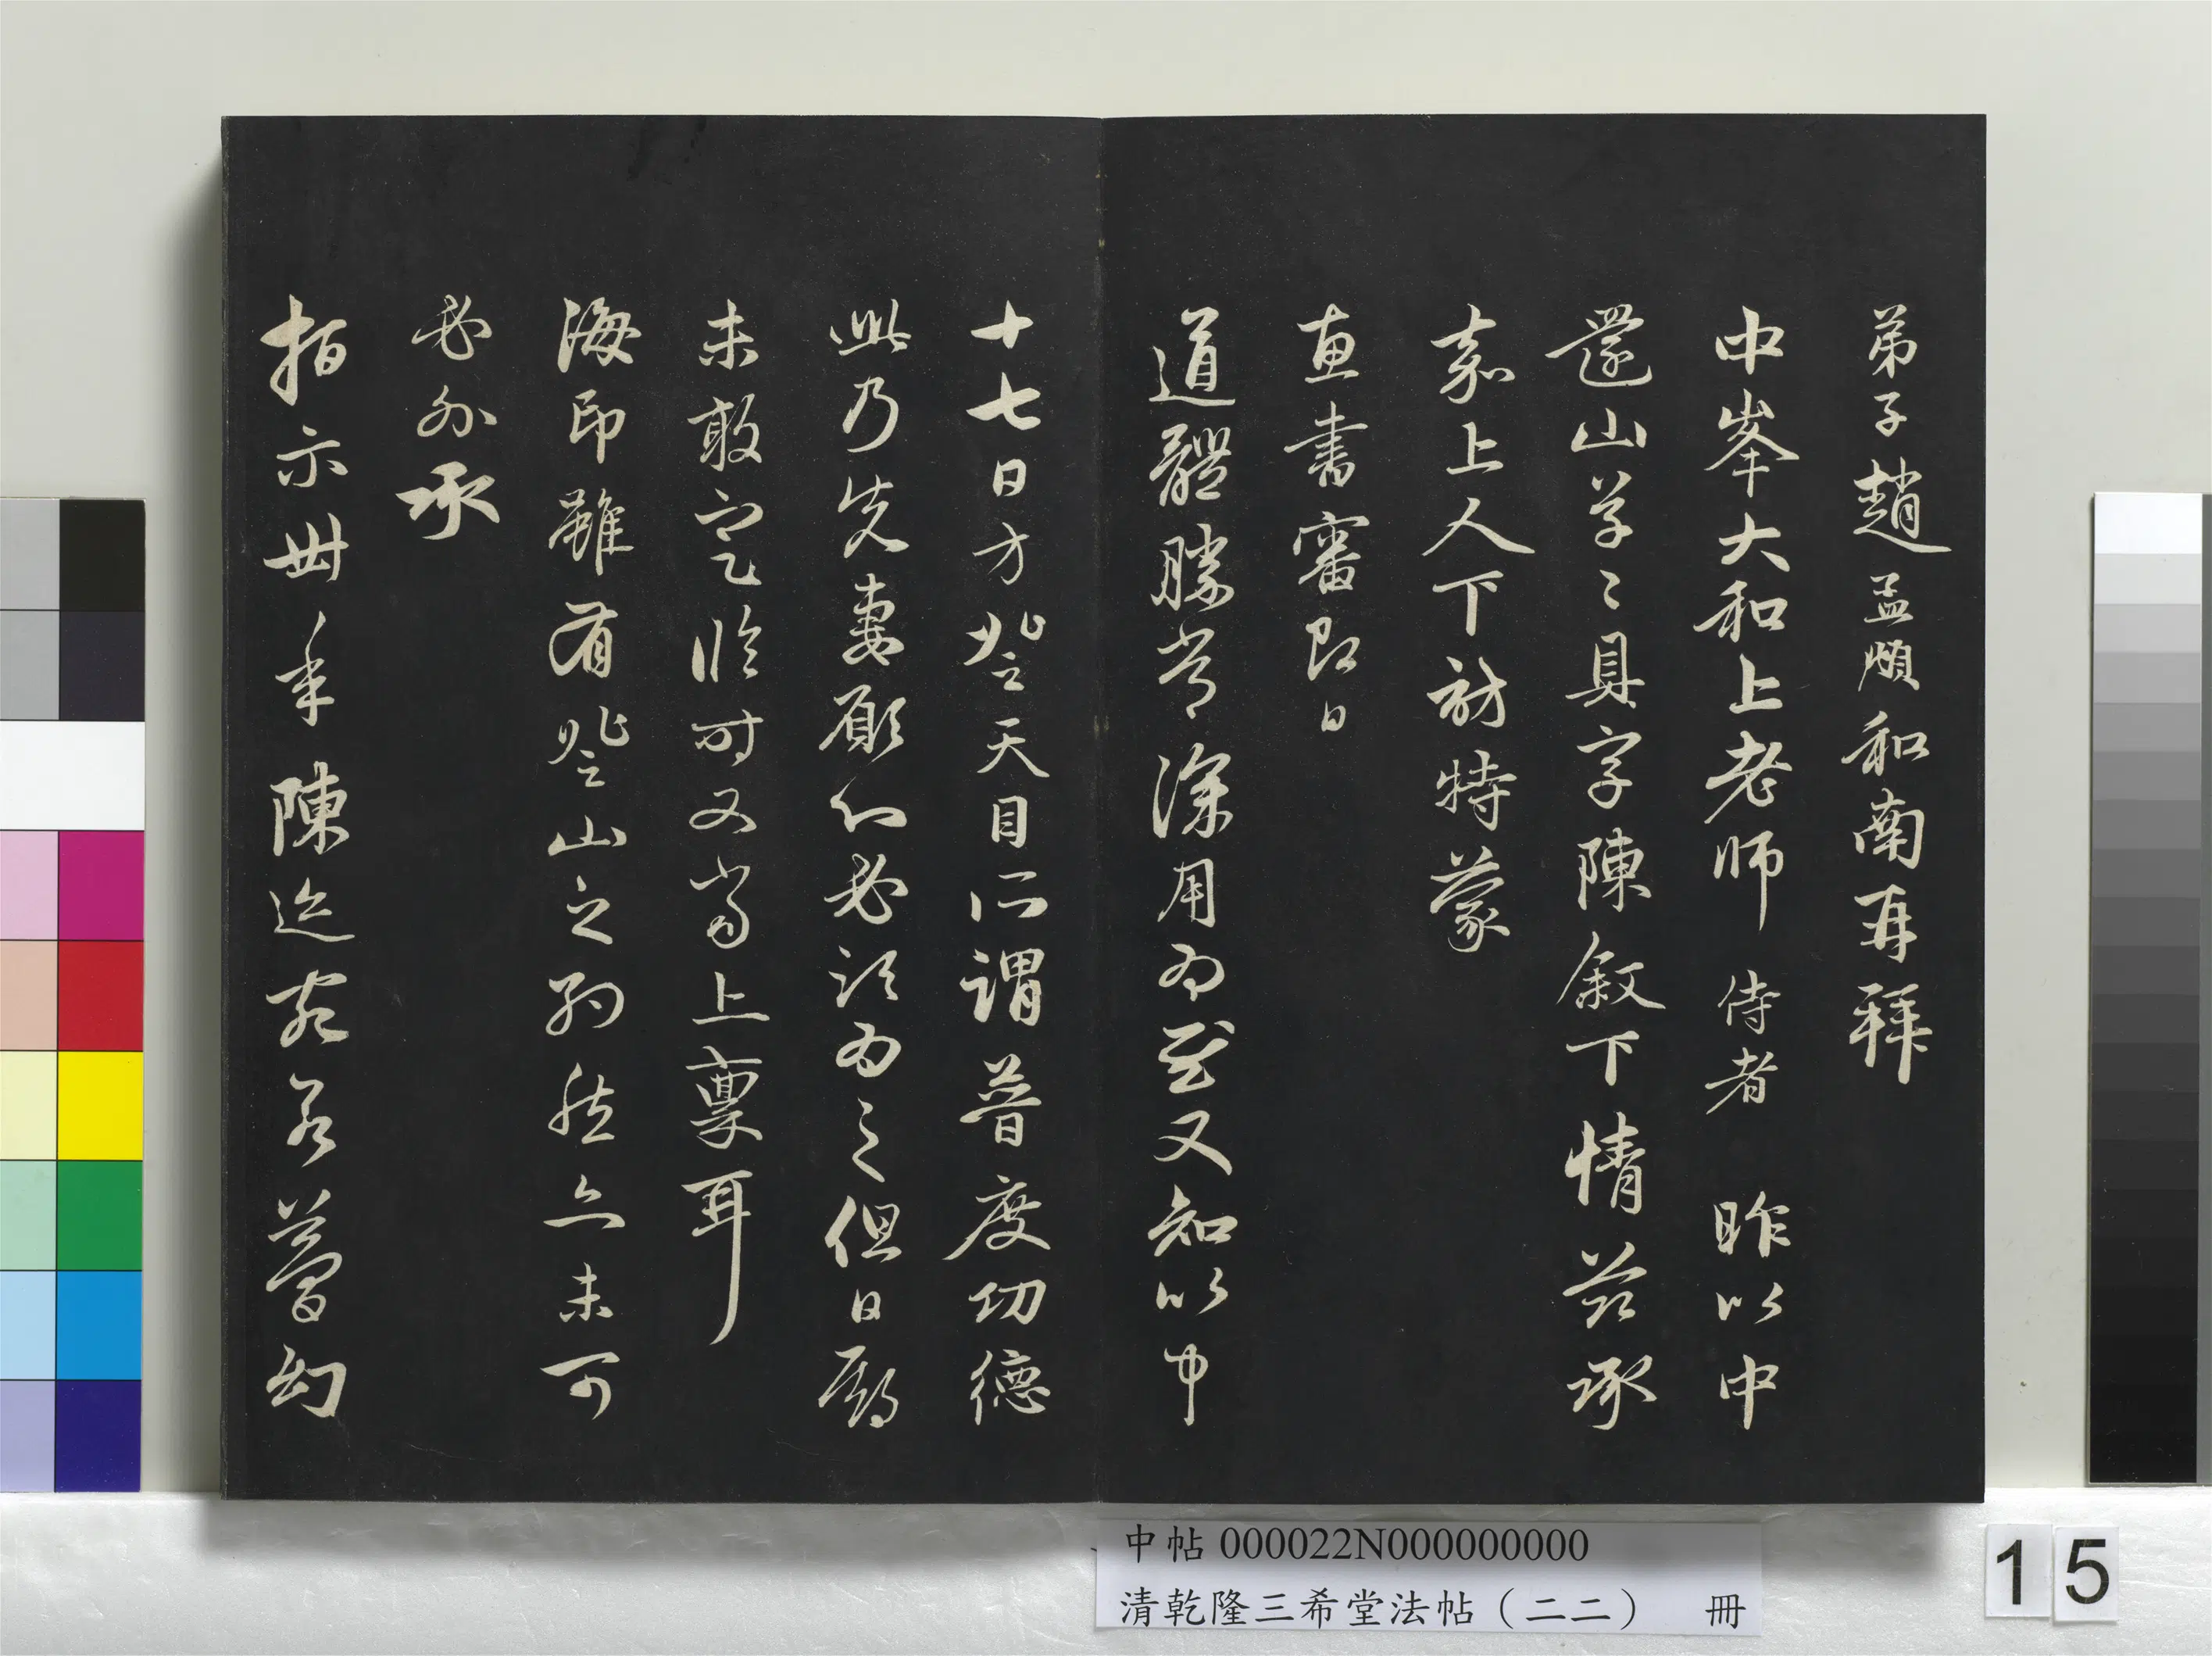 弟子趙孟頫和南再拜
中峯大和上老师侍者 昨以中
還山草〻具字陳敘下情茲承
嘉上人下訪特蒙
惠書審即日
道體勝常深用為慰又知以中
十七日方登天目所謂普度功德
此乃先妻願心必須為之但日期
未敢定臨时又當上稟耳
海印雖有登山之約然亦未可
必外承
指示卅年陳迹宛若夢幻
中帖 000022N000000000
清乾隆三希堂法帖（二二） 冊
15